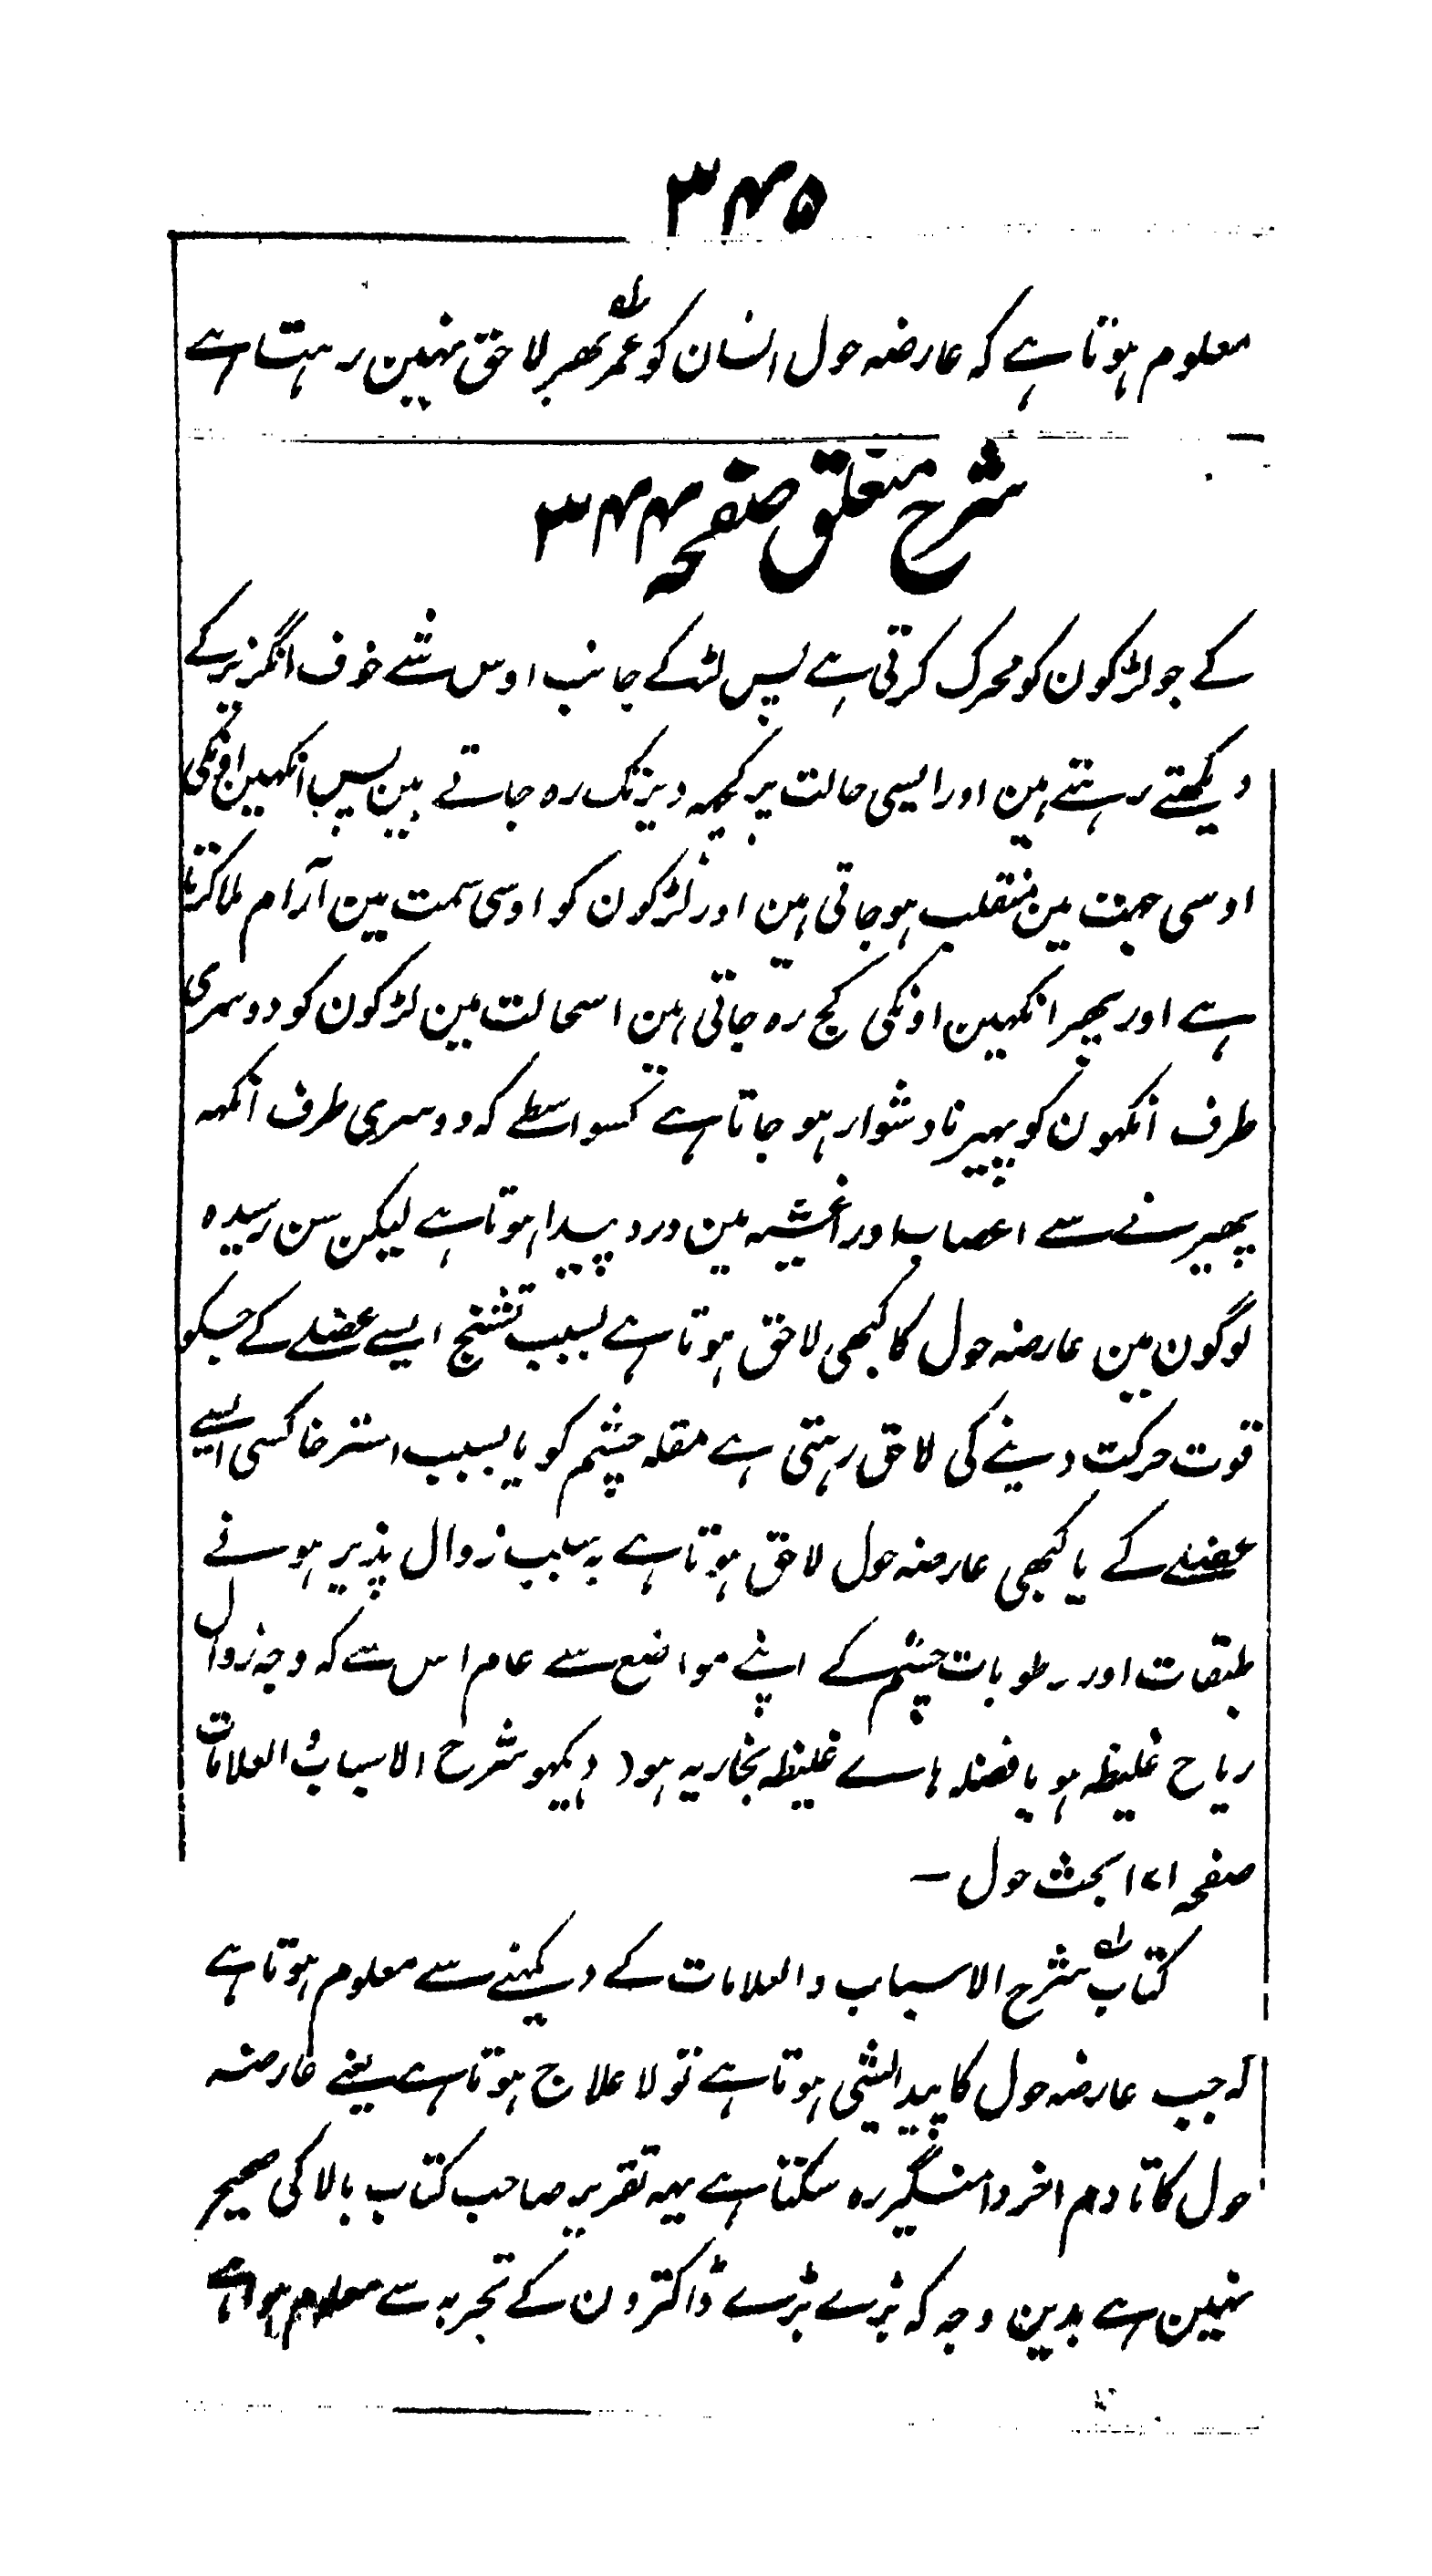 ۳۴۵
معلوم ہوتا ہے کہ عارضہ حول انسان کو عمر بھر لاحق نہین رہتا ہے
شرح متعلق صفحہ ۳۴۴
کے جو لڑکون کو محرک کرتی ہے پس لڑکے جانب اوس شے خوف انگیز کے
دیکھتے رہتے ہین اور ایسی حالت پر کچھہ دیر تک رہ جاتے ہین پس انکھین اونکی
اوسی جہت مین منقلب ہوجاتی ہین اور لڑکون کو اوسی سمت مین آرام ملا کرتا
ہے اور پھر انکھین اونکی کج رہ جاتی ہین اسحالت مین لڑکون کو دوسری
طرف انکھون کو پھیرنا دشوار ہو جاتا ہے کسواسطے کہ دوسری طرف انکھہ
پھیرنے سے اعصاب اور اغشیہ مین درد پیدا ہوتا ہے لیکن سن رسیدہ
لوگون مین عارضہ حول کا کبھی لاحق ہوتا ہے بسبب تشنج ایسے عضلے کے جسکو
قوت حرکت دینے کی لاحق رہتی ہے مقلہ چشم کو یا بسبب استرخا کسی ایسے
عضلے کے یا کبھی عارضہ حول لاحق ہوتا ہے بہ سبب زوال پذیر ہونے
طبقات اور رطوبات چشم کے اپنے مواضع سے عام اس سے کہ وجہ زوال
ریاح غلیظہ ہو یا فضلہ ہاے غلیظہ بخاریہ ہو ( دیکھو شرح الاسباب و العلامات
صفحہ ۱۷۱ بحث حول ۔
کتاب شرح الاسباب والعلامات کے دیکھنے سے معلوم ہوتا ہے
کہ جب عارضہ حول کا پیدایشی ہوتا ہے تو لا علاج ہوتا ہے یعنے عارضہ
حول کا تا دم اخر دامنگیر رہ سکتا ہے یہہ تقریر صاحب کتاب بالا کی صحیح
نہین ہے بدین وجہ کہ بڑے بڑے ڈاکٹرون کے تجربہ سے معلوم ہوا ہے